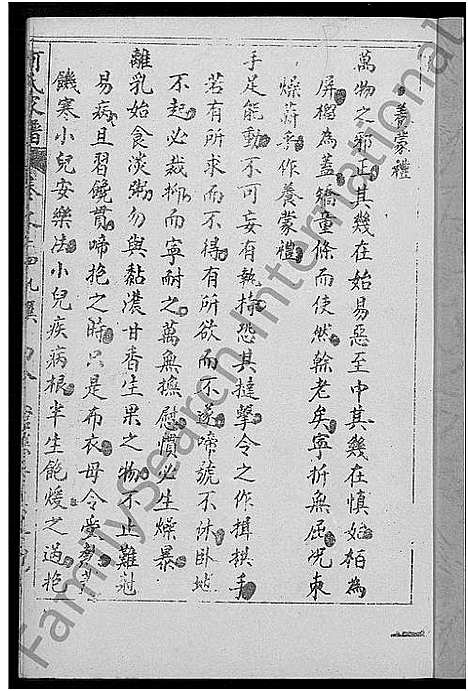 養蒙禮
萬物之邪正其幾在始易惡至中其幾在慎始栢為
屏榴為蓋矯童條而使然幹老矣寧折無屈况束
燥薪乎作養蒙禮
手足能動不可妄有執持恐其撻擊令之作揖拱手
若有所求而不得有所欲而不遂啼號不休卧地
不起必裁抑而寧耐之萬無撫慰慣必生燥暴
離乳始食淡粥勿與黏濃甘香生果之物不止難剋
易病且習饞貫啼抱之時只是布衣母令受熱
饑寒小兒安樂法小兒疾病根半生飽煖之過抱
何氏家譜
FamilySearch International